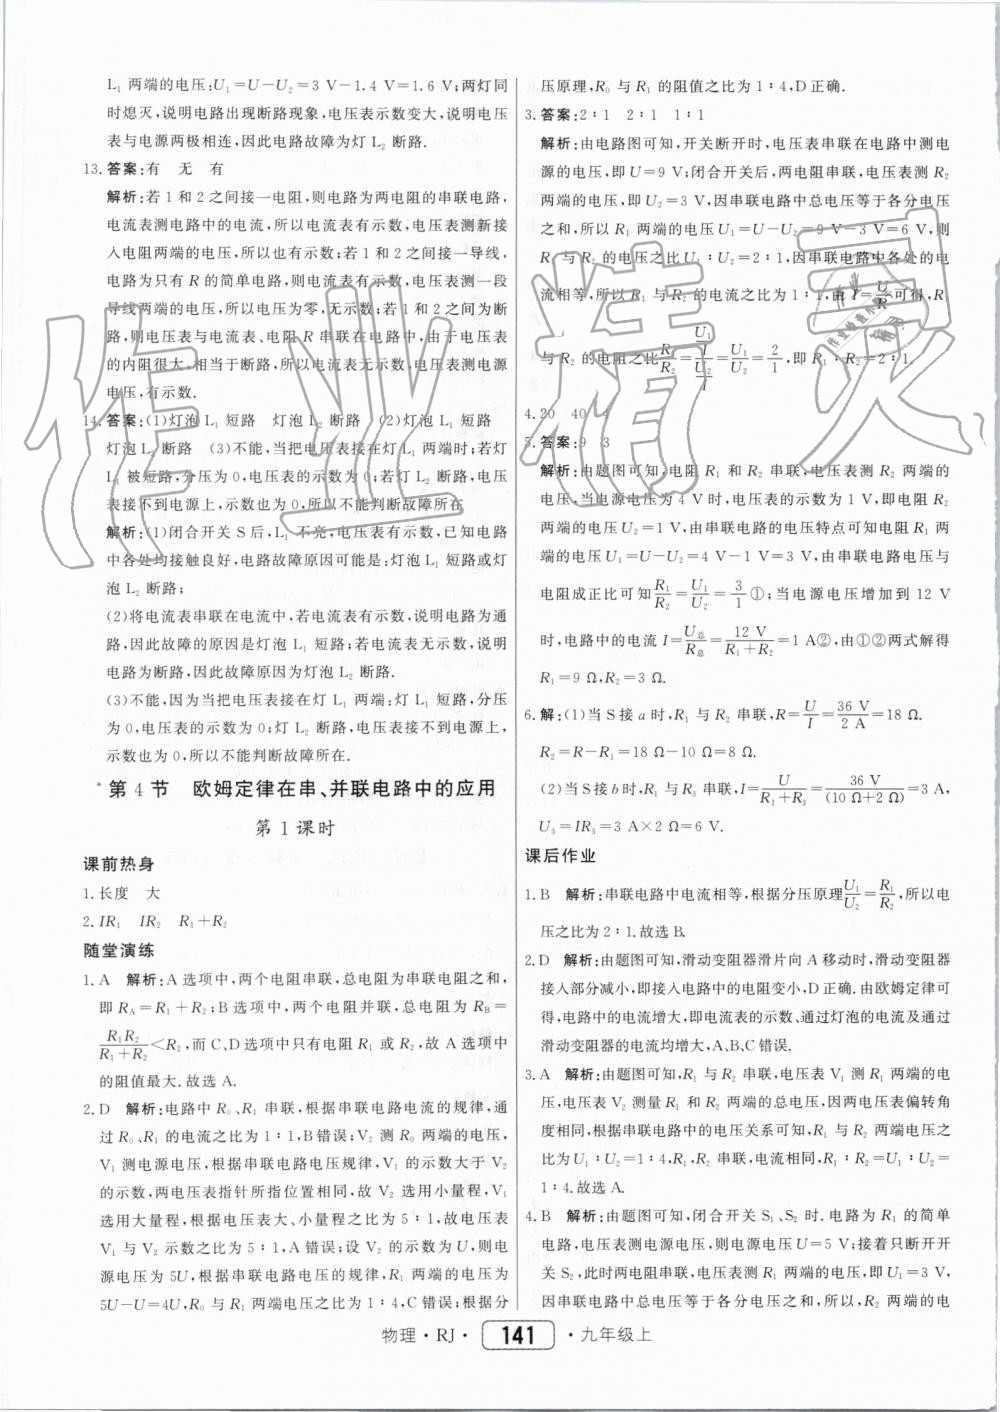 L₁ 两端的电压:U₁=U−U₂=3 V−1.4 V=1.6 V;两灯同
时熄灭,说明电路出现断路现象,电压表示数变大,说明电压
表与电源两极相连,因此电路故障为灯 L₂ 断路.
13.答案:有　无　有
解析:若 1 和 2 之间接一电阻,则电路为两电阻的串联电路,
电流表测电路中的电流,所以电流表有示数,电压表测新接
入电阻两端的电压,所以也有示数;若 1 和 2 之间接一导线,
电路为只有 R 的简单电路,则电流表有示数,电压表测一段
导线两端的电压,所以电压为零,无示数;若 1 和 2 之间为断
路,则电压表与电流表、电阻 R 串联在电路中,由于电压表
的内阻很大,相当于断路,所以电流表无示数,电压表测电源
电压,有示数.
14.答案:(1)灯泡 L₁ 短路　灯泡 L₂ 断路　(2)灯泡 L₁ 短路
灯泡 L₂ 断路　(3)不能,当把电压表接在 L₁ 两端时;若灯
L₁ 被短路,分压为 0,电压表的示数为 0;若灯 L₂ 断路,电压
表接不到电源上,示数也为 0,所以不能判断故障所在.
解析:(1)闭合开关 S 后,L₁ 不亮,电压表有示数,已知电路
中各处均接触良好,电路故障原因可能是:灯泡 L₁ 短路或灯
泡 L₂ 断路;
(2)将电流表串联在电流中,若电流表有示数,说明电路为通
路,因此故障的原因是灯泡 L₁ 短路;若电流表无示数,说明
电路为断路,因此故障原因为灯泡 L₂ 断路.
(3)不能,因为当把电压表接在灯 L₁ 两端:灯 L₁ 短路,分压
为 0,电压表的示数为 0;灯 L₂ 断路,电压表接不到电源上,
示数也为 0,所以不能判断故障所在.
*第 4 节　欧姆定律在串、并联电路中的应用
第 1 课时
课前热身
1.长度　大
2.IR₁　IR₂　R₁+R₂
随堂演练
1.A　解析:A 选项中,两个电阻串联,总电阻为串联电阻之和,
即 R_A=R₁+R₂;B 选项中,两个电阻并联,总电阻为 R_B=
R₁R₂/(R₁+R₂)<R₂,而 C、D 选项中只有电阻 R₁ 或 R₂,故 A 选项中
的阻值最大.故选 A.
2.D　解析:电路中 R₀、R₁ 串联,根据串联电路电流的规律,通
过 R₀、R₁ 的电流之比为 1∶1,B 错误;V₂ 测 R₀ 两端的电压,
V₁ 测电源电压,根据串联电路电压规律,V₁ 的示数大于 V₂
的示数,两电压表指针所指位置相同,故 V₂ 选用小量程,V₁
选用大量程,根据电压表大、小量程之比为 5∶1,故电压表
V₁ 与 V₂ 示数之比为 5∶1,A 错误;设 V₂ 的示数为 U,则电
源电压为 5U,根据串联电路电压的规律,R₁ 两端的电压为
5U−U=4U,R₀ 与 R₁ 两端电压之比为 1∶4,C 错误;根据分
压原理,R₀ 与 R₁ 的阻值之比为 1∶4,D 正确.
3.答案:2∶1　2∶1　1∶1
解析:由电路图可知,开关断开时,电压表串联在电路中测电
源的电压,即 U=9 V;闭合开关后,两电阻串联,电压表测 R₂
两端的电压,即 U₂=3 V,因串联电路中总电压等于各分电压
之和,所以 R₁ 两端的电压 U₁=U−U₂=9 V−3 V=6 V,则
R₁ 与 R₂ 的电压之比 U₁∶U₂=2∶1,因串联电路中各处的电
流相等,所以 R₁ 与 R₂ 的电流之比为 1∶1,由 I=U/R 可得,R₁
与 R₂ 的电阻之比 R₁/R₂=(U₁/I)/(U₂/I)=U₁/U₂=2/1,即 R₁∶R₂=2∶1.
4.20　40　4
5.答案:9　3
解析:由题图可知,电阻 R₁ 和 R₂ 串联,电压表测 R₂ 两端的
电压,当电源电压为 4 V 时,电压表的示数为 1 V,即电阻 R₂
两端的电压 U₂=1 V,由串联电路的电压特点可知电阻 R₁ 两
端的电压 U₁=U−U₂=4 V−1 V=3 V,由串联电路电压与
电阻成正比可知 R₁/R₂=U₁/U₂=3/1①;当电源电压增加到 12 V
时,电路中的电流 I=U总/R总=12 V/(R₁+R₂)=1 A②,由①②两式解得
R₁=9 Ω,R₂=3 Ω.
6.解:(1)当 S 接 a 时,R₁ 与 R₂ 串联,R=U/I=36 V/2 A=18 Ω.
R₂=R−R₁=18 Ω−10 Ω=8 Ω.
(2)当 S 接 b 时,R₁ 与 R₃ 串联,I=U/(R₁+R₃)=36 V/(10 Ω+2 Ω)=3 A,
U₃=IR₃=3 A×2 Ω=6 V.
课后作业
1.B　解析:串联电路中电流相等,根据分压原理 U₁/U₂=R₁/R₂,所以电
压之比为 2∶1.故选 B.
2.D　解析:由题图可知,滑动变阻器滑片向 A 移动时,滑动变阻器
接入部分减小,即接入电路中的电阻变小,D 正确.由欧姆定律可
得,电路中的电流增大,即电流表的示数、通过灯泡的电流及通过
滑动变阻器的电流均增大,A、B、C 错误.
3.A　解析:由题图可知,R₁ 与 R₂ 串联,电压表 V₁ 测 R₁ 两端的电
压,电压表 V₂ 测量 R₁ 和 R₂ 两端的总电压,因两电压表偏转角
度相同,根据串联电路中的电压关系可知,R₁、R₂ 两端电压之
比为 U₁∶U₂=1∶4,R₁、R₂ 串联,电流相同,R₁∶R₂=U₁∶U₂=
1∶4.故选 A.
4.B　解析:由题图可知,闭合开关 S₁、S₂ 时.电路为 R₁ 的简单
电路,电压表测电源电压,则电源电压 U=5 V;接着只断开开
关 S₂,此时两电阻串联,电压表测 R₁ 两端的电压,即 U₁=3 V,
因串联电路中总电压等于各分电压之和,所以,R₂ 两端的电
物理·RJ· 141 ·九年级上
作业精灵